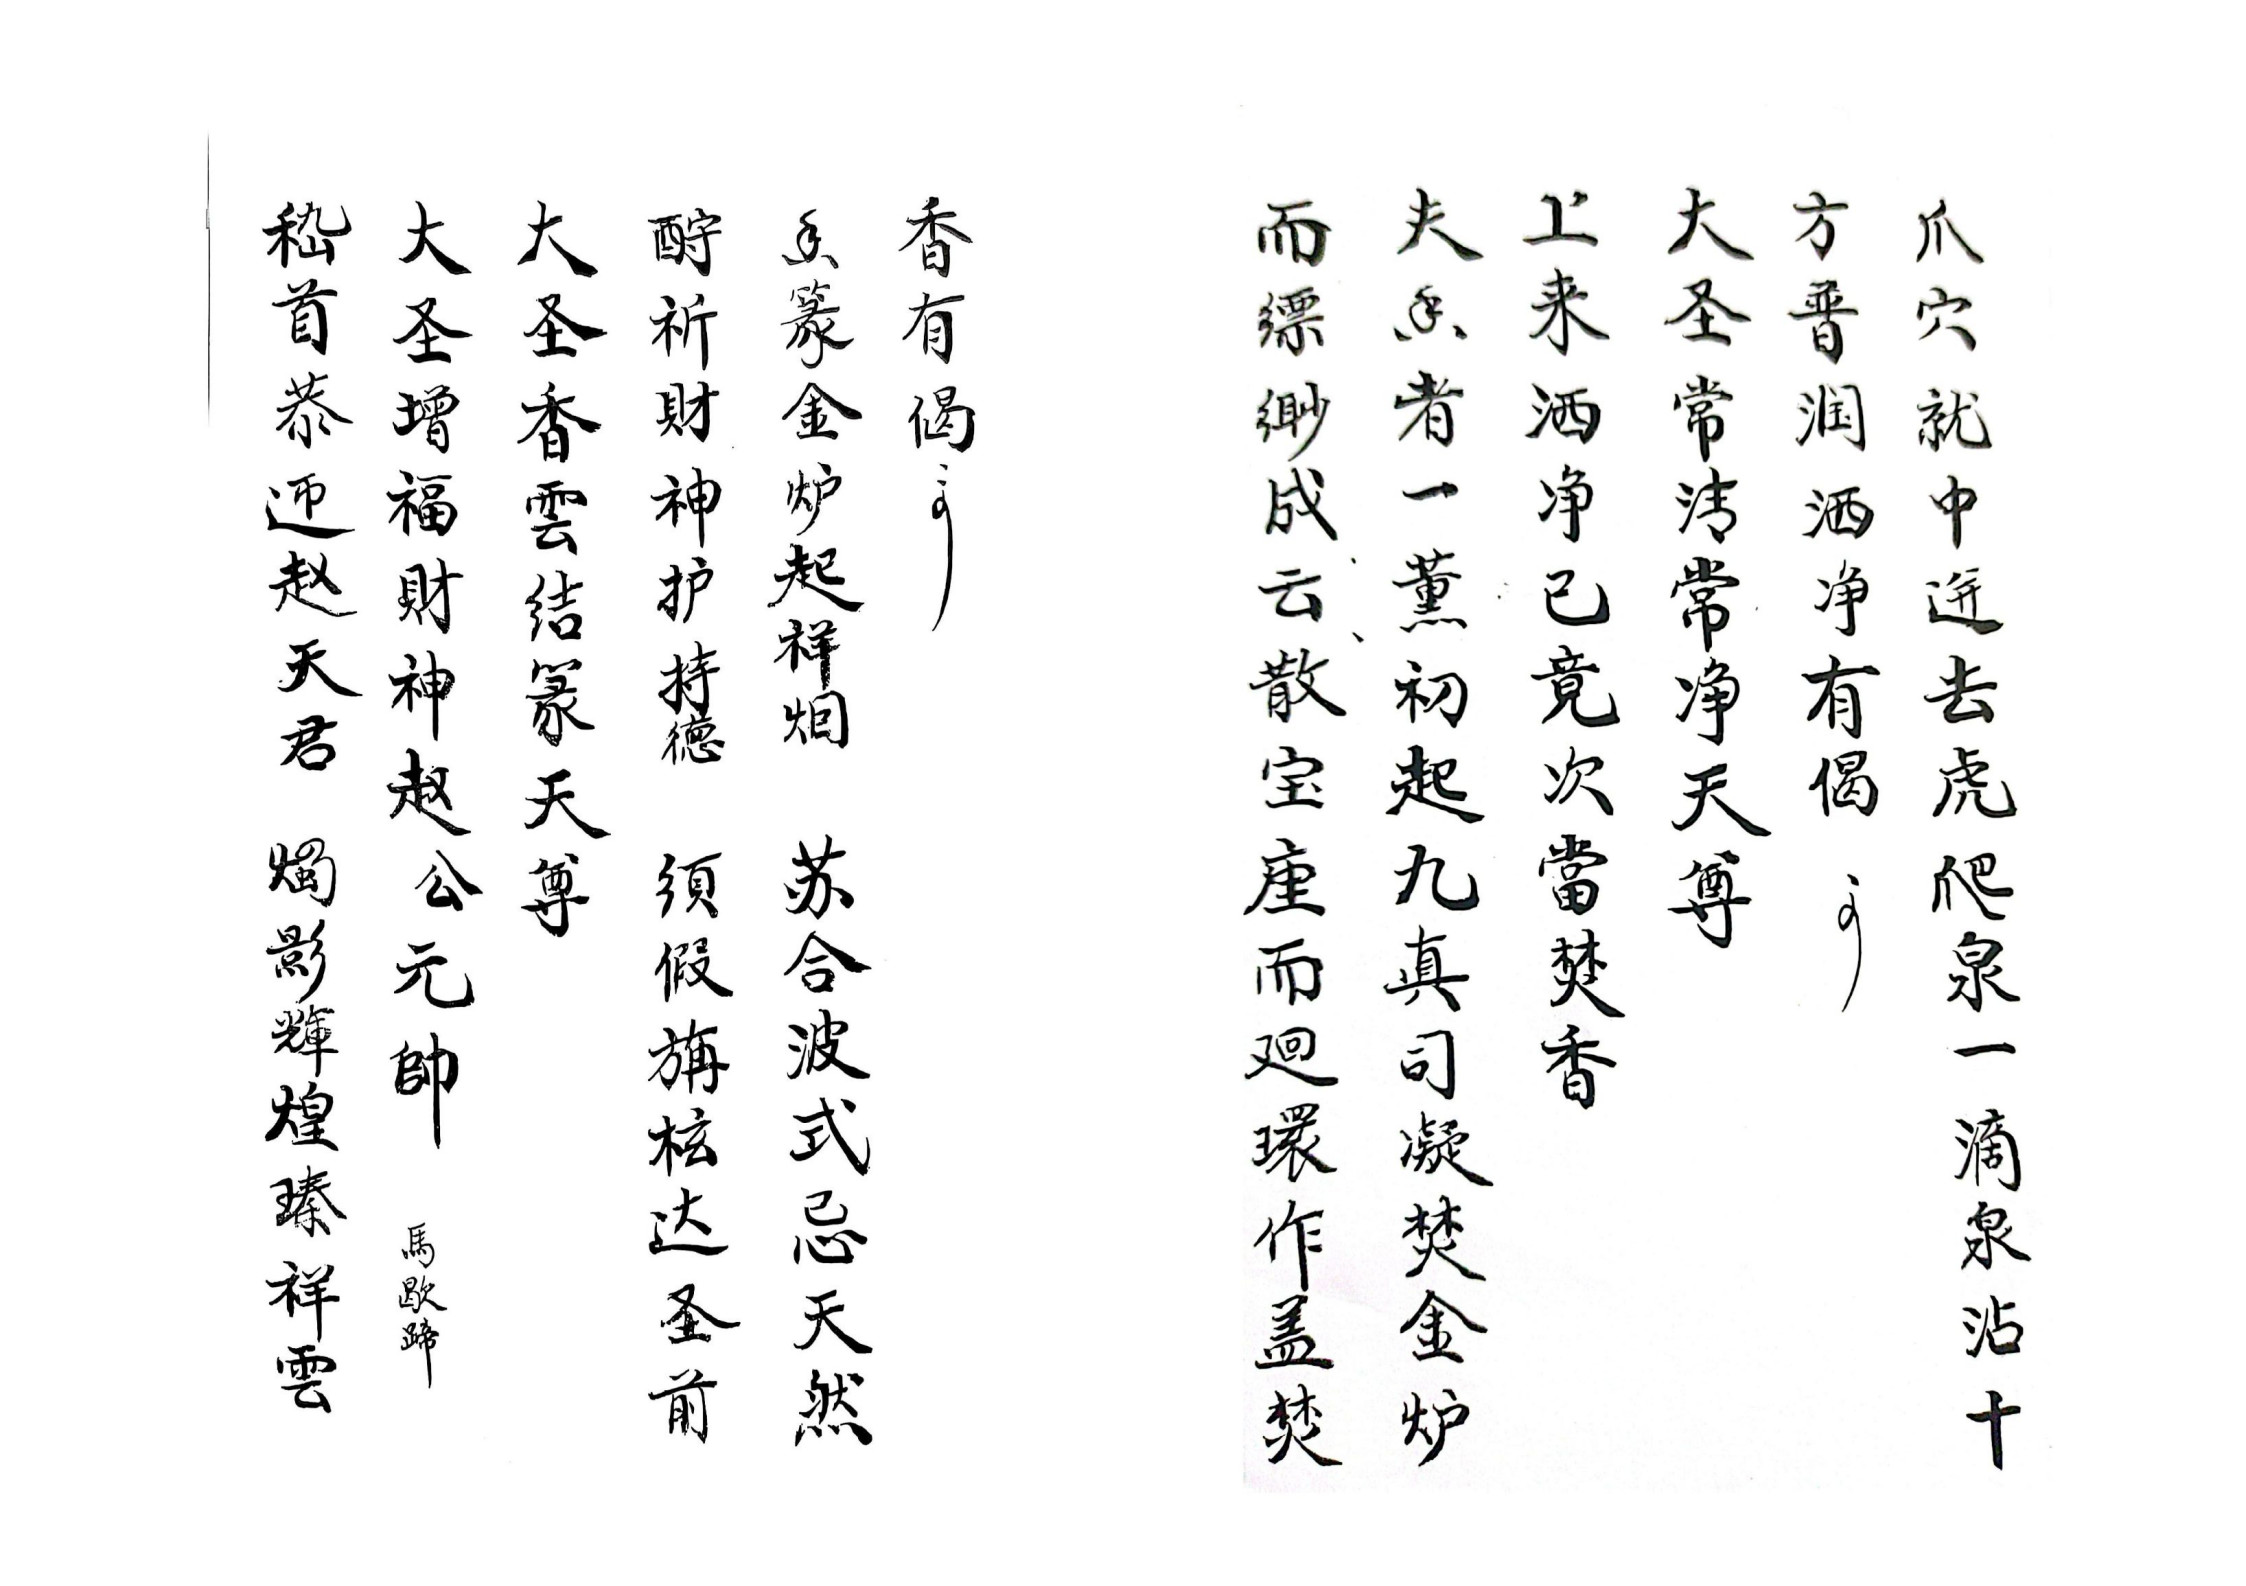 爪穴就中迸去虎爬泉一滴泉沾十
方普润洒净有偈
大圣常清常净天尊
上来洒净已竟次當焚香
夫香者一薰初起九真司凝焚金炉
而缥缈成云散宝座而廻環作盖焚
香有偈
香篆金炉起祥烟 苏合波式忌天然
酧祈財神护持德 須假旃枟达圣前
大圣香雲结篆天尊
大圣增福財神赵公元帥 馬歇蹄
嵇首恭迊赵天君 燭影輝煌瑧祥雲